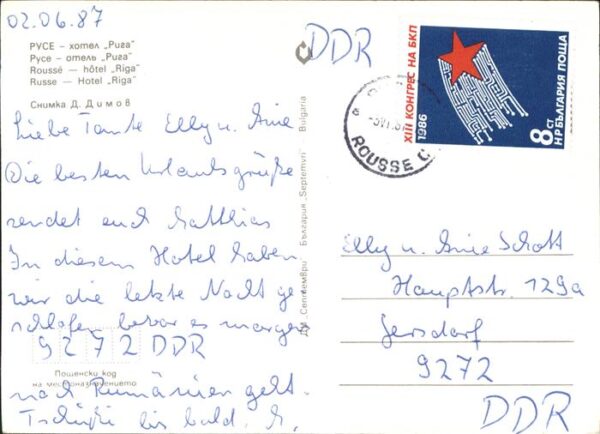 02.06.87
РУСЕ – хотел „Рига“
Русе – отель „Рига“
Roussé – hôtel „Riga“
Russe – Hotel „Riga“
Снимка Д. Димов
Liebe Tante Elly u. Arie
Die besten Urlaubsgrüße
sendet euch Matthias
In diesem Hotel haben
wir die letzte Nacht ge
schlafen bevor es morgen
9272 DDR
Пощенски код
на местоназначението
nach Rumänien geht.
Tschüß bis bald. M.
ДИ „Септември“ България „Septemvri“ Bulgaria
DDR
XIII КОНГРЕС НА БКП
1986
8 СТ
НР БЪЛГАРИЯ ПОЩА
ROUSSE
Elly u. Arie Schott
Hauptstr. 129a
Gersdorf
9272
DDR